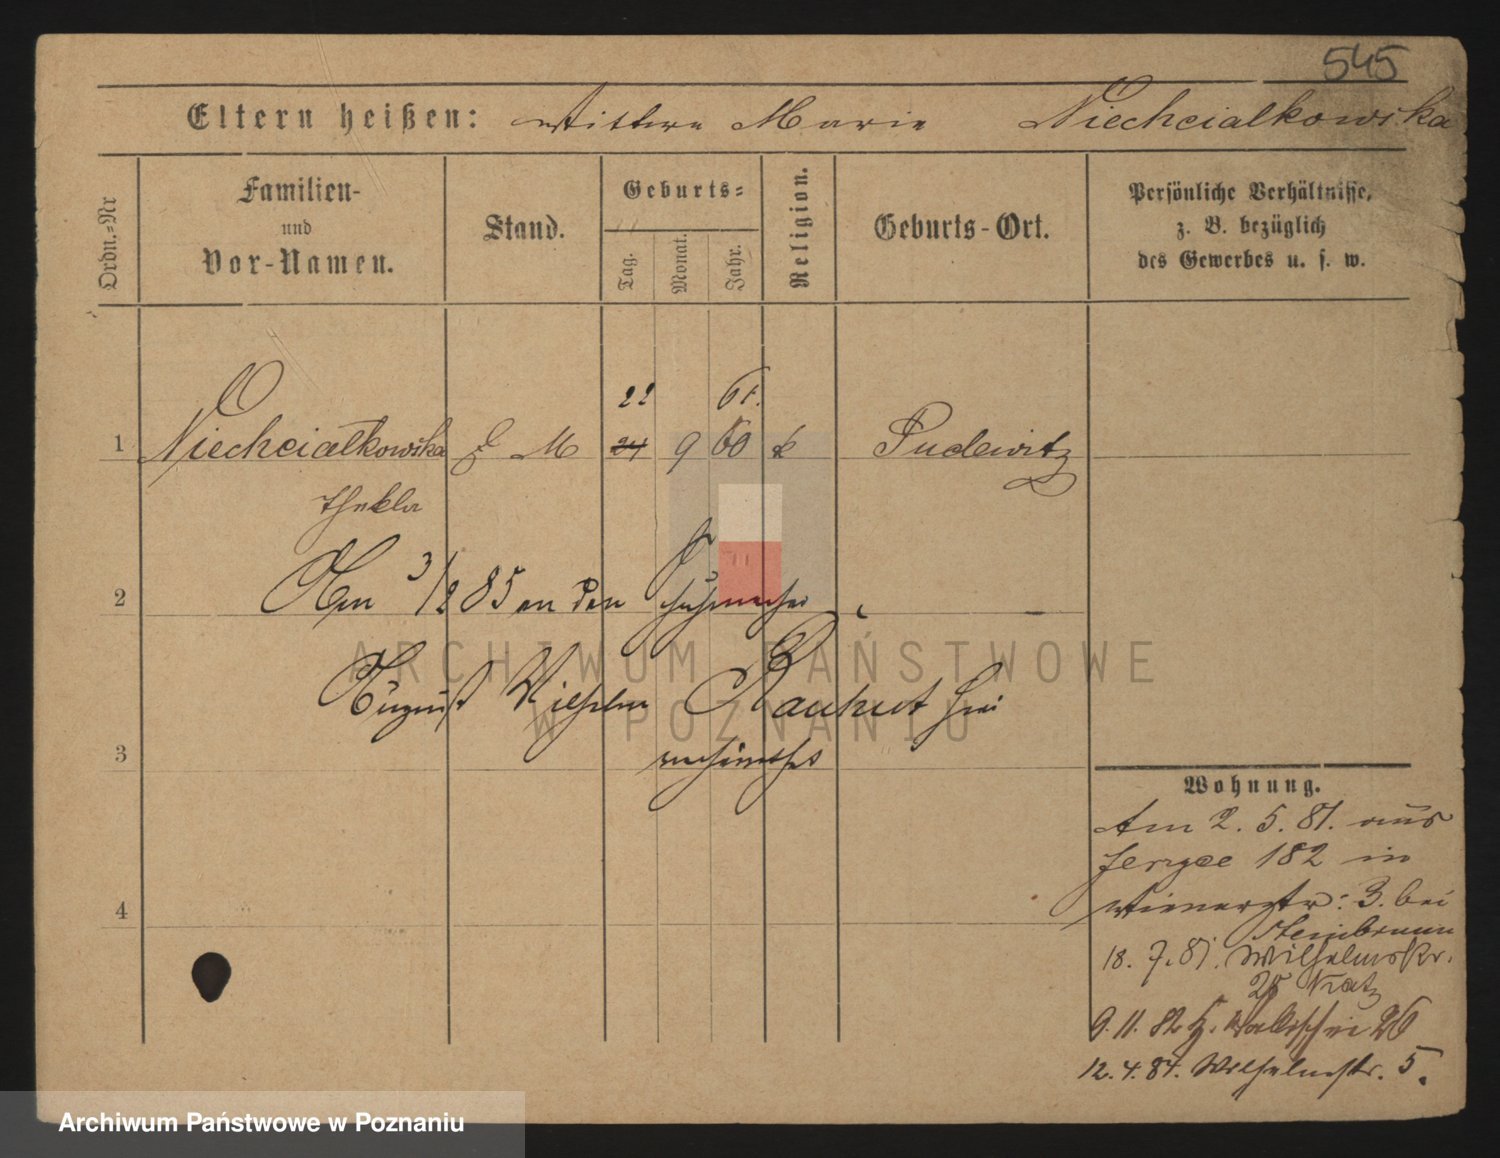 545
Eltern heißen: Wittwe Marie Niechcialkowska
Ordn.=Nr
Familien-
und
Vor-Namen.
Stand.
Geburts=
Tag.
Monat.
Jahr.
Religion.
Geburts-Ort.
Persönliche Verhältnisse,
z. B. bezüglich
des Gewerbes u. s. w.
22 61.
1 Niechciałkowska M 24 9 60 k Pudewitz
Thekla
2 Am 3/2 85 an den
August Wilhelm Rauhut
3
4
Wohnung.
Am 2. 5. 81. aus
Jerzyce 182 in
Wienerstr: 3. bei
Steinbrunn
18. 7. 81. Wilhelmstr.
25 Katz
9. 11. 82 Wallischei 26
12. 4. 84. Wilhelmstr. 5.
ARCHIWUM PAŃSTWOWE
W POZNANIU
Archiwum Państwowe w Poznaniu